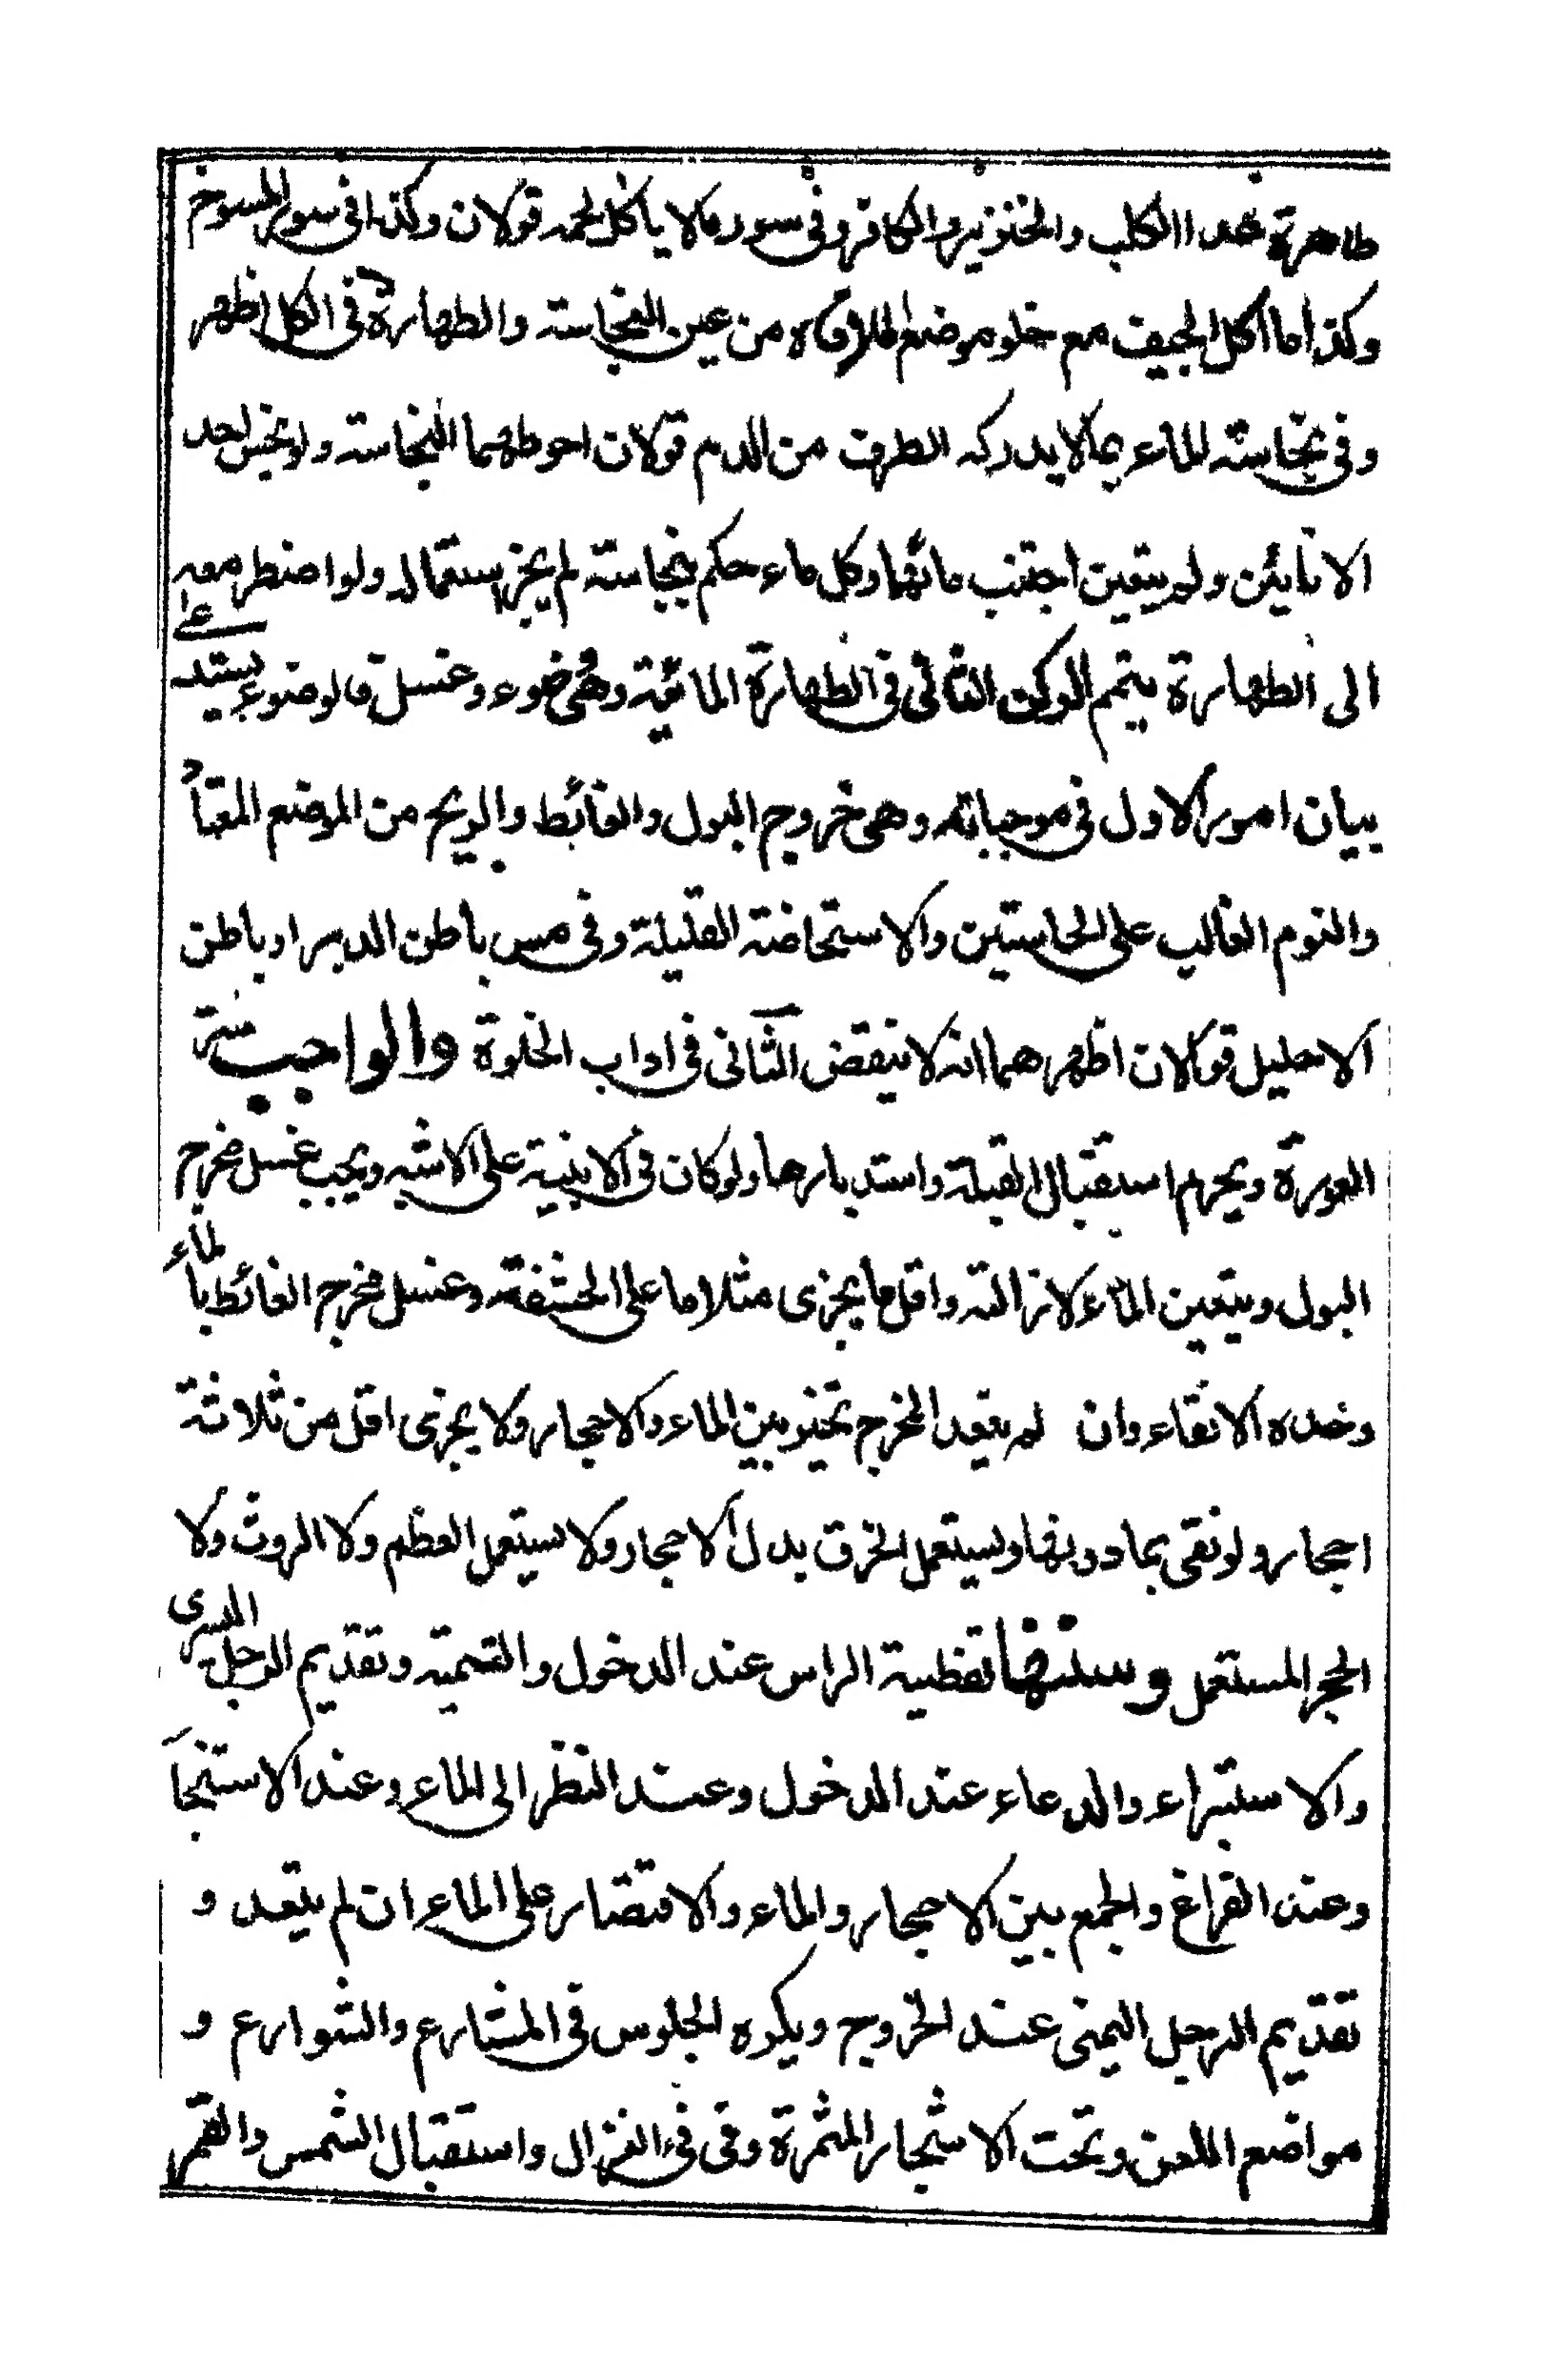 طاهرة عدا الكلب والخنزير والكافر وفى سور مالا ياكل لحمه قولان وكذا فى سور المسوخ
وكذا ما اكل الجيف مع خلو موضع الملاقاه من عين النجاسته والطهارة فى الكل اظهر
وفى نجاسته الماء بمالا يدركه الطرف من الدم قولان احوطهما النجاسته ولو نجس احد
الانايئن ولم يتعين اجتنب مائهما وكل ماء حكم بنجاسته لم يجز استعماله ولو اضطر معه
الى الطهارة يتمم الركن الثانى فى الطهارة المائية وهى وضوء وغسل فالوضوء يستدعى
بيان امور الاول فى موجباته وهى خروج البول والغائط والريح من الموضع المعتاد
والنوم الغالب على الحاستين والاستحاضته القليلة وفى مس باطن الدبر او باطن
الاحليل قولان اظهرهما انه لا ينقض الثانى فى اداب الخلوة والواجب ستر
العورة ويحرم استقبال القبلة واستدبارها ولو كان فى الابنية على الاشبه ويجب غسل مخرج
البول ويتعين الماء لازالته واقل ما يجزى مثلا ما على الحشفته وغسل مخرج الغائط بالماء
وحده الانقاء وان لم يتعد المخرج تخير بين الماء والاحجار ولا يجزى اقل من ثلاثة
احجار ولو نقى بما دونها ويستعمل الخرق بدل الاحجار ولا يستعمل العظم ولا الروث ولا
الحجر المستعمل وسننها تغطية الراس عند الدخول والتسميته وتقديم الرجل اليسرى
والاستبراء والدعاء عند الدخول وعند النظر الى الماء وعند الاستنجا
وعند الفراغ والجمع بين الاحجار والماء والاقتصار على الماء ان لم يتعد و
تقديم الرجل اليمنى عند الخروج ويكره الجلوس فى المشارع والشوارع و
مواضع اللعن وتحت الاشجار المثمرة وفى فىء النزال واستقبال الشمس والقمر